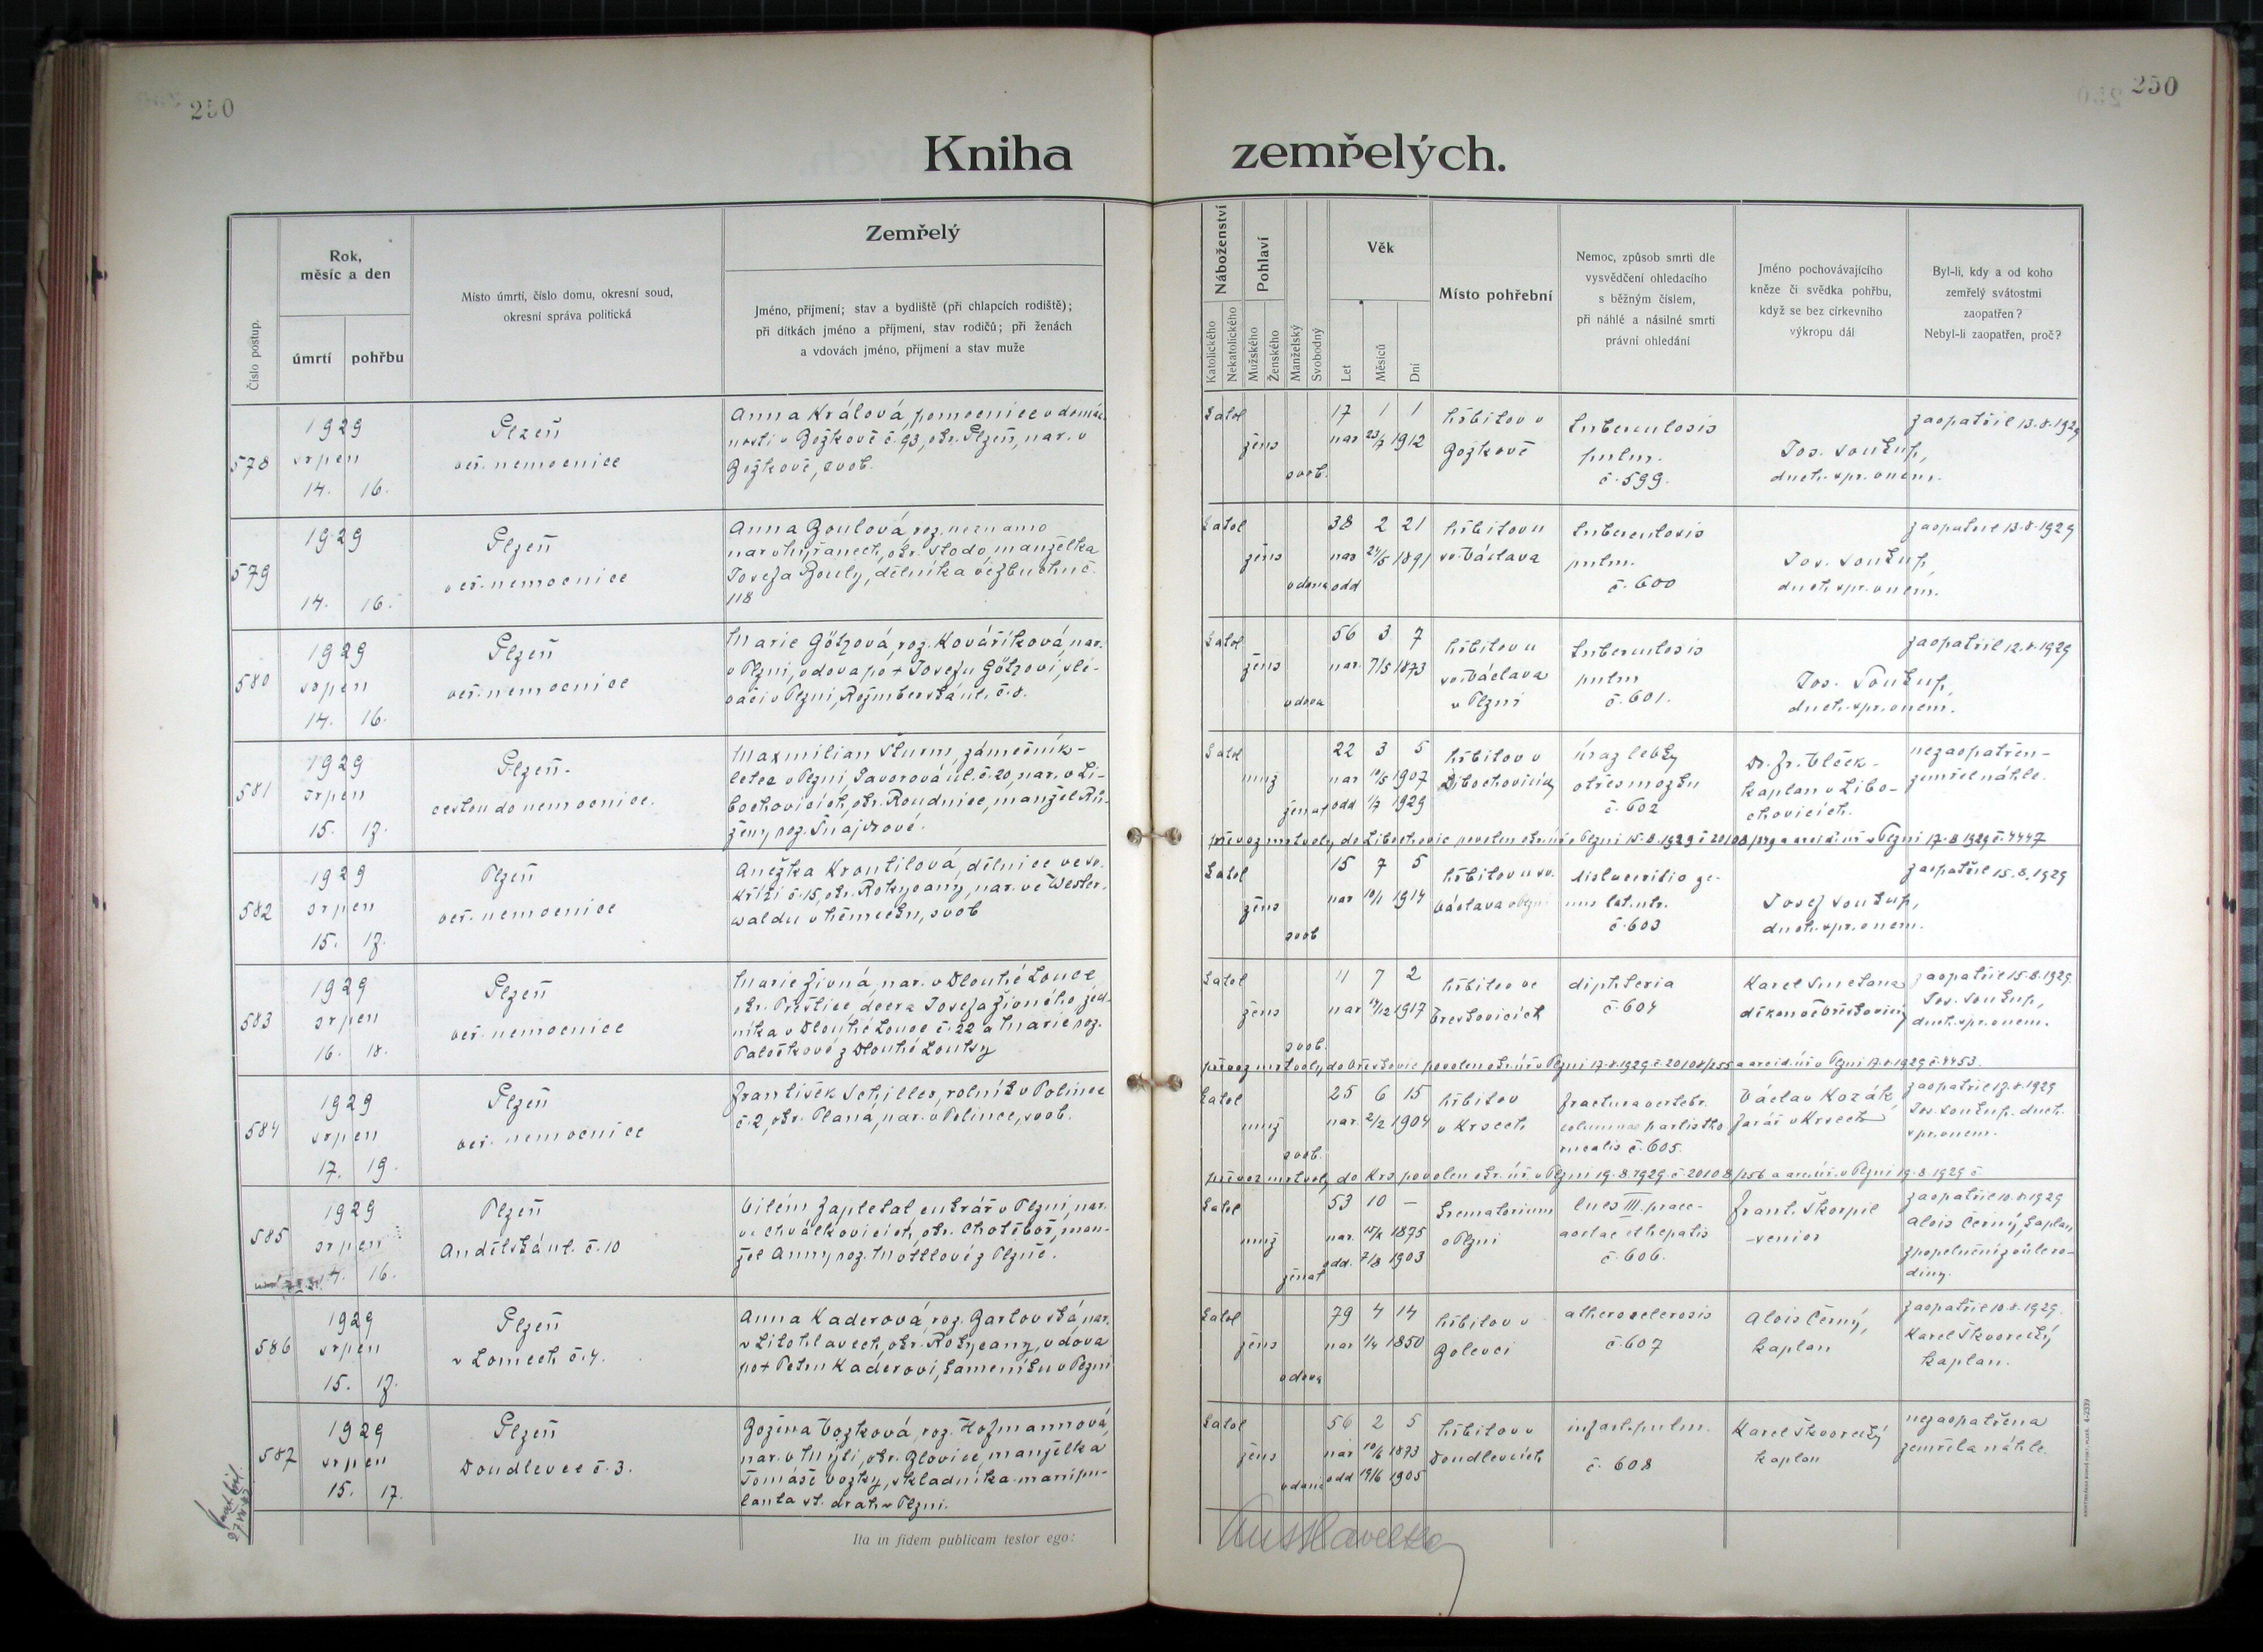 250
250
Kniha zemřelých.
Číslo postup.
Rok,
měsíc a den
úmrtí
pohřbu
Místo úmrtí, číslo domu, okresní soud,
okresní správa politická
Zemřelý
Jméno, příjmení; stav a bydliště (při chlapcích rodiště);
při dítkách jméno a příjmení, stav rodičů; při ženách
a vdovách jméno, příjmení a stav muže
Náboženství
Katolického
Nekatolického
Pohlaví
Mužského
Ženského
Manželský
Svobodný
Věk
Let
Měsíců
Dní
Místo pohřební
Nemoc, způsob smrti dle
vysvědčení ohledacího
s běžným číslem,
při náhlé a násilné smrti
právní ohledání
Jméno pochovávajícího
kněze či svědka pohřbu,
když se bez církevního
výkropu dál
Byl-li, kdy a od koho
zemřelý svátostmi
zaopatřen?
Nebyl-li zaopatřen, proč?
578
1929
srpen
14. 16.
Plzeň
veř. nemocnice
Anna Králová, pomocnice v domác-
nosti v Božkově č. 93, okr. Plzeň, nar. v
Božkově, svob.
katol
žens
svob.
17 1 1
nar 23/7 1912
hřbitov v
Božkově
tuberculosis
pulm.
č. 599.
Jos. Soukup,
duch. spr. v nem.
zaopatřil 13.8.1929
579
1929
14. 16.
Plzeň
veř. nemocnice
Anna Boulová, roz. neznámo
nar. v Nýřanech, okr. Stodo, manželka
Josefa Bouly, dělníka
118
katol
žens
vdaná
38 2 21
nar 24/5 1891
odd
hřbitov u
sv. Václava
tuberculosis
pulm.
č. 600
Jos. Soukup,
duch. spr. v nem.
zaopatřil 13.8.1929
580
1929
srpen
14. 16.
Plzeň
veř. nemocnice
Marie Götzová, roz. Kováříková, nar.
v Plzni, vdova po + Josefu Götzovi, slé-
vači v Plzni, Rožmberská ul. č. 8.
katol
žens
vdova
56 3 7
nar. 7/5 1873
hřbitov u
sv. Václava
v Plzni
tuberculosis
pulm
č. 601.
Jos. Soukup,
duch. spr. v nem.
zaopatřil 12.8.1929
581
1929
srpen
15. 17.
Plzeň-
cestou do nemocnice.
Maxmilian Šturm, zámečník-
letec v Plzni, Bavorová ul. č. 20, nar. v Li-
bochovicích, okr. Roudnice, manžel Rů-
ženy roz. Šnajdrové.
katol
muž
ženat
22 3 5
nar 10/5 1907
odd 1/7 1929
hřbitov v
Libochovicích
úraz lebky
otřes mozku
č. 602
Dr. Fr. Vlček-
kaplan v Libo-
chovicích.
nezaopatřen-
zemřel náhle.
převoz mrtvoly do Libochovic povolen okr. úř. v Plzni 15.8.1929 č 20108/ v Plzni 17.8.1929 č. 4447
582
1929
srpen
15. 17.
Plzeň
veř. nemocnice
Anežka Kroutilová, dělnice ve sv.
Kříži č. 15, okr. Rokycany, nar. ve Wester-
waldu v Německu, svob
katol
žens
svob
15 7 5
nar 10/1 1914
hřbitov u sv.
Václava v Plzni
ge-
nus lat. utr.
č. 603
Josef Soukup,
duch. spr. v nem.
zaopatřil 15.8.1929
583
1929
srpen
16. 18.
Plzeň
veř. nemocnice
Marie Živná, nar. v Dlouhé Louce
okr. Přeštice, dcera Josefa Živného, zed-
níka v Dlouhé Louce č. 22 a Marie roz.
Palečkové z Dlouhé Loutky
katol
žens
svob.
11 7 2
nar 14/12 1917
hřbitov ve
Březkovicích
diphteria
č. 604
Karel Smetana
děkan
zaopatřil 15.8.1929.
Jos. Soukup,
duch. spr. v nem.
převoz mrtvoly do povolen okr. úř. v Plzni 17.8.1929 č. 20108/255 v Plzni 17.8.1929 č. 4453.
584
1929
srpen
17. 19.
Plzeň
veř. nemocnice
František Schiller, rolník v Polince
č. 2, okr. Planá, nar. v Polince, svob.
katol
muž
svob.
25 6 15
nar. 2/2 1904
hřbitov
v Krsech
fractura vertebr.
columnae
č. 605.
Václav Kozák
farář v Krsech
zaopatřil 17.8.1929
Jos. Soukup. duch.
spr. v nem.
převoz mrtvoly do Krs povolen okr. úř. v Plzni 19.8.1929 č. 20108/256 v Plzni 19.8.1929 č
585
1929
srpen
14. 16.
Plzeň
Andělská ul. č. 10
Vilém Zapletal cukrář v Plzni, nar.
ve Chválkovicích, okr. Chotěboř, man-
žel Anny, roz. Möttlové z Plzně.
katol
muž
ženat
53 10 —
nar. 1875
odd. 7/8 1903
krematorium
v Plzni
lues III. praec-
aortae et hepatis
č. 606.
Frant. Škorpil
-senior
zaopatřil 10.8.1929
Alois Černý, kaplan
zpopelnění z vůle ro-
diny.
586
1929
srpen
15. 17.
Plzeň
v Lomech č. 4.
Anna Kaderová, roz. Bartovská, nar.
v Litohlavech, okr. Rokycany, vdova
po + Petru Kaderovi, kameníku v Plzni
katol
žens
vdova
79 4 14
nar 1/4 1850
hřbitov v
Bolevci
atherosclerosis
č. 607
Alois Černý,
kaplan
zaopatřil 10.8.1929.
Karel Škvorecký
kaplan.
587
1929
srpen
15. 17.
Plzeň
Doudlevce č. 3.
Božena Vozková, roz. Hofmannová,
nar. v Mýti, okr. Blovice, manželka
Tomáše Vozky, skladníka-manipu-
lanta st. drah v Plzni.
katol
žens
vdaná
56 2 5
nar 10/6 1873
odd 19/6 1905
hřbitov v
Doudlevcích
infarct. pulm.
č. 608
Karel Škvorecký
kaplan
nezaopatřena
zemřela náhle.
Ita in fidem publicam testor ego: